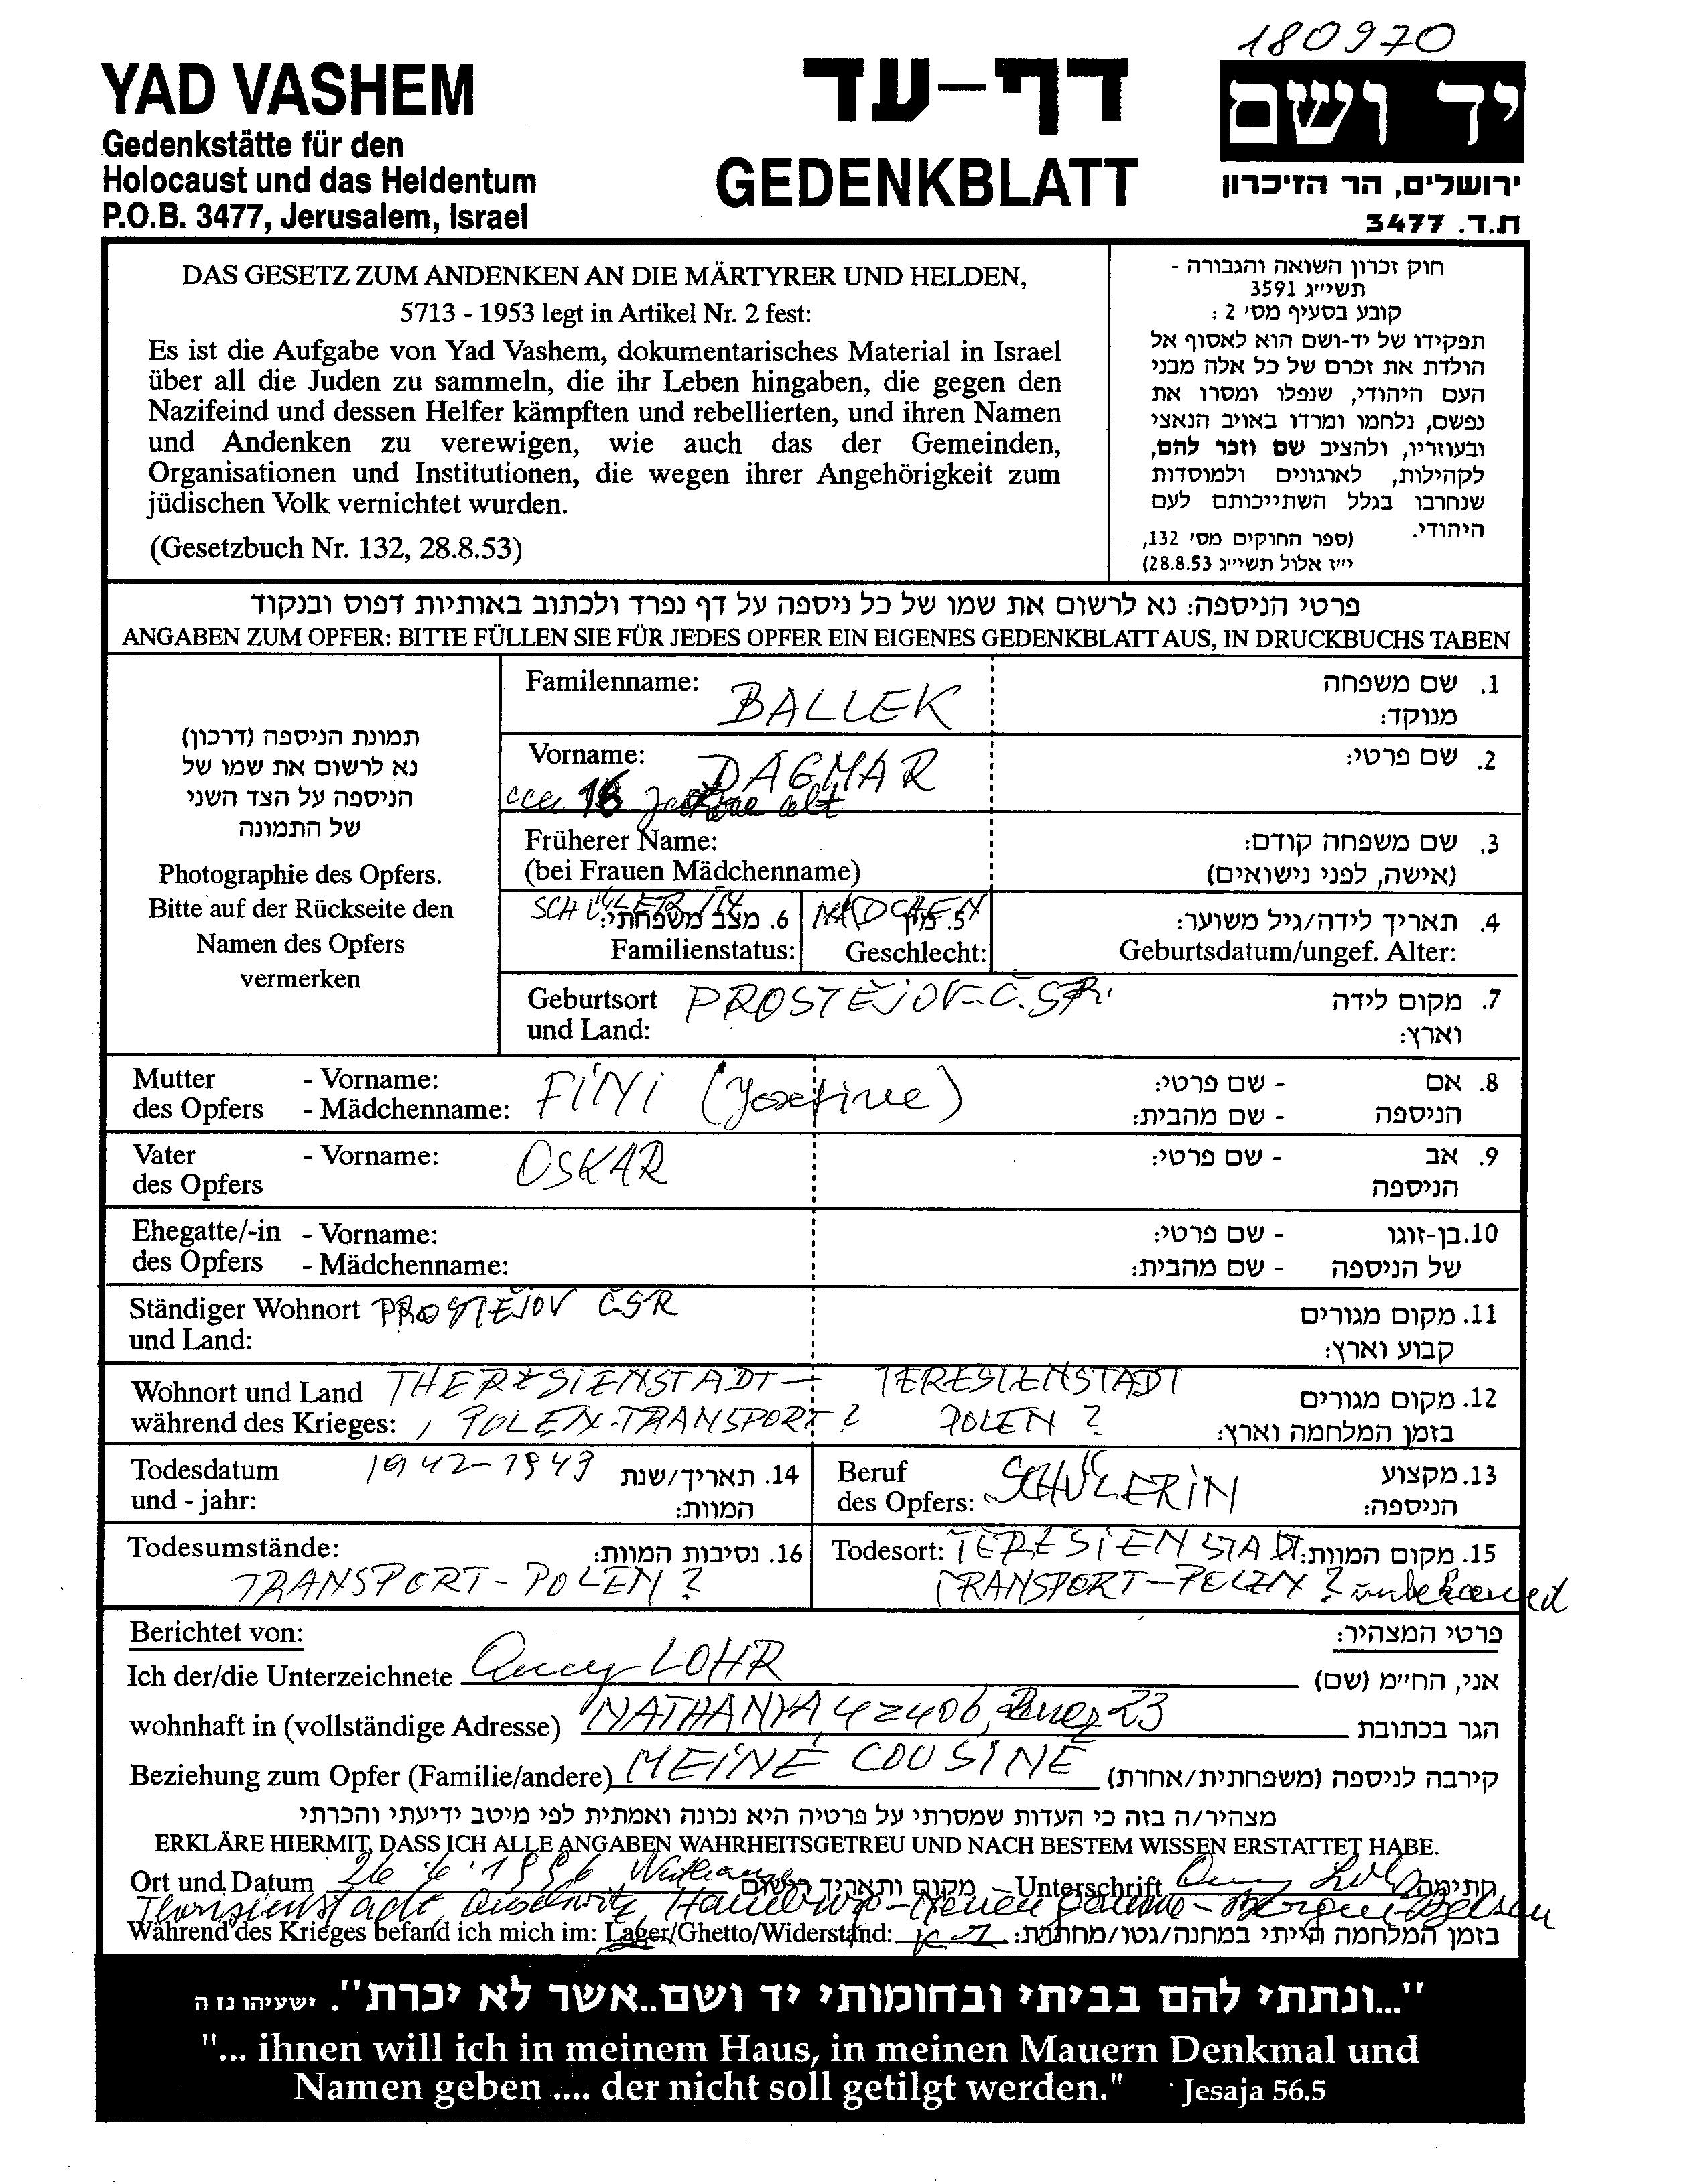 180970
YAD VASHEM
Gedenkstätte für den
Holocaust und das Heldentum
P.O.B. 3477, Jerusalem, Israel
דף-עד
GEDENKBLATT
יד ושם
ירושלים, הר הזיכרון
ת.ד. 3477
DAS GESETZ ZUM ANDENKEN AN DIE MÄRTYRER UND HELDEN,
5713 - 1953 legt in Artikel Nr. 2 fest:
Es ist die Aufgabe von Yad Vashem, dokumentarisches Material in Israel
über all die Juden zu sammeln, die ihr Leben hingaben, die gegen den
Nazifeind und dessen Helfer kämpften und rebellierten, und ihren Namen
und Andenken zu verewigen, wie auch das der Gemeinden,
Organisationen und Institutionen, die wegen ihrer Angehörigkeit zum
jüdischen Volk vernichtet wurden.
(Gesetzbuch Nr. 132, 28.8.53)
חוק זכרון השואה והגבורה -
תשי״ג 3591
קובע בסעיף מס׳ 2 :
תפקידו של יד-ושם הוא לאסוף אל
הולדת את זכרם של כל אלה מבני
העם היהודי, שנפלו ומסרו את
נפשם, נלחמו ומרדו באויב הנאצי
ובעוזריו, ולהציב שם וזכר להם,
לקהילות, לארגונים ולמוסדות
שנחרבו בגלל השתייכותם לעם
היהודי.
(ספר החוקים מס׳ 132,
י״ז אלול תשי״ג 28.8.53)
פרטי הניספה: נא לרשום את שמו של כל ניספה על דף נפרד ולכתוב באותיות דפוס ובנקוד
ANGABEN ZUM OPFER: BITTE FÜLLEN SIE FÜR JEDES OPFER EIN EIGENES GEDENKBLATT AUS, IN DRUCKBUCHS TABEN
תמונת הניספה (דרכון)
נא לרשום את שמו של
הניספה על הצד השני
של התמונה
Photographie des Opfers.
Bitte auf der Rückseite den
Namen des Opfers
vermerken
Familenname: BALLEK 1. שם משפחה
מנוקד:
Vorname: DAGMAR 2. שם פרטי:
cca 16 Jahre alt
Früherer Name: 3. שם משפחה קודם:
(bei Frauen Mädchenname) (אישה, לפני נישואים)
SCHÜLERIN 6. מצב משפחתי: MÄDCHEN 5. מין 4. תאריך לידה/גיל משוער:
Familienstatus: Geschlecht: Geburtsdatum/ungef. Alter:
Geburtsort PROSTĚJOV-Č.S.R. 7. מקום לידה
und Land: וארץ:
Mutter - Vorname: FINI (Josefine) - שם פרטי: 8. אם
des Opfers - Mädchenname: - שם מהבית: הניספה
Vater - Vorname: OSKAR - שם פרטי: 9. אב
des Opfers הניספה
Ehegatte/-in - Vorname: - שם פרטי: 10. בן-זוגו
des Opfers - Mädchenname: - שם מהבית: של הניספה
Ständiger Wohnort PROSTĚJOV ČSR 11. מקום מגורים
und Land: קבוע וארץ:
Wohnort und Land THERESIENSTADT - TERESIENSTADT 12. מקום מגורים
während des Krieges: , POLEN-TRANSPORT? POLEN ? בזמן המלחמה וארץ:
Todesdatum 1942-1943 14. תאריך/שנת
und - jahr: המוות:
Beruf SCHÜLERIN 13. מקצוע
des Opfers: הניספה:
Todesumstände: 16. נסיבות המוות:
TRANSPORT-POLEN?
Todesort: TERESIENSTADT 15. מקום המוות:
TRANSPORT-POLEN? unbekannt
Berichtet von: פרטי המצהיר:
Ich der/die Unterzeichnete Anny LOHR אני, הח״מ (שם)
wohnhaft in (vollständige Adresse) NATHANYA, 42406, 23 הגר בכתובת
Beziehung zum Opfer (Familie/andere) MEINE COUSINE קירבה לניספה (משפחתית/אחרת)
מצהיר/ה בזה כי העדות שמסרתי על פרטיה היא נכונה ואמתית לפי מיטב ידיעתי והכרתי
ERKLÄRE HIERMIT, DASS ICH ALLE ANGABEN WAHRHEITSGETREU UND NACH BESTEM WISSEN ERSTATTET HABE.
Ort und Datum 1996 מקום ותאריך Unterschrift Anny Lohr חתימה
Theresienstadt, Auschwitz, Hamburg-Neuengamme-Bergen-Belsen
Während des Krieges befand ich mich im: Lager/Ghetto/Widerstand: בזמן המלחמה הייתי במחנה/גטו/מחתרת:
"...ונתתי להם בביתי ובחומותי יד ושם..אשר לא יכרת". ישעיהו נז ה
"... ihnen will ich in meinem Haus, in meinen Mauern Denkmal und
Namen geben .... der nicht soll getilgt werden." Jesaja 56.5